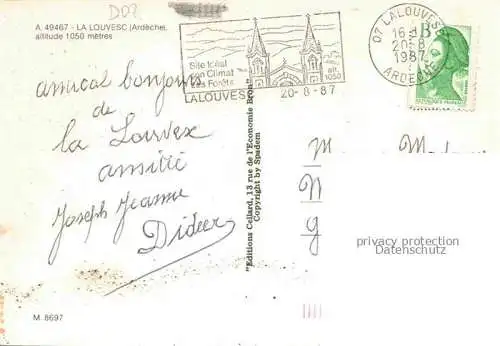 D07
A 49467 - LA LOUVESC (Ardèche),
altitude 1050 mètres
Site Idéal
Bon Climat
Ses Forêts
alt.
1050
LALOUVESC
20-8-87
07 LALOUVESC
16 H
20-8
1987
ARDECHE
B
amical bonjour
de
la Louvesc
amitié
Joseph Jeanne
Didier
"Editions Cellard, 13 rue de l'Economie Bron"
Copyright by Spadem
M
N
g
privacy protection
Datenschutz
M 8697